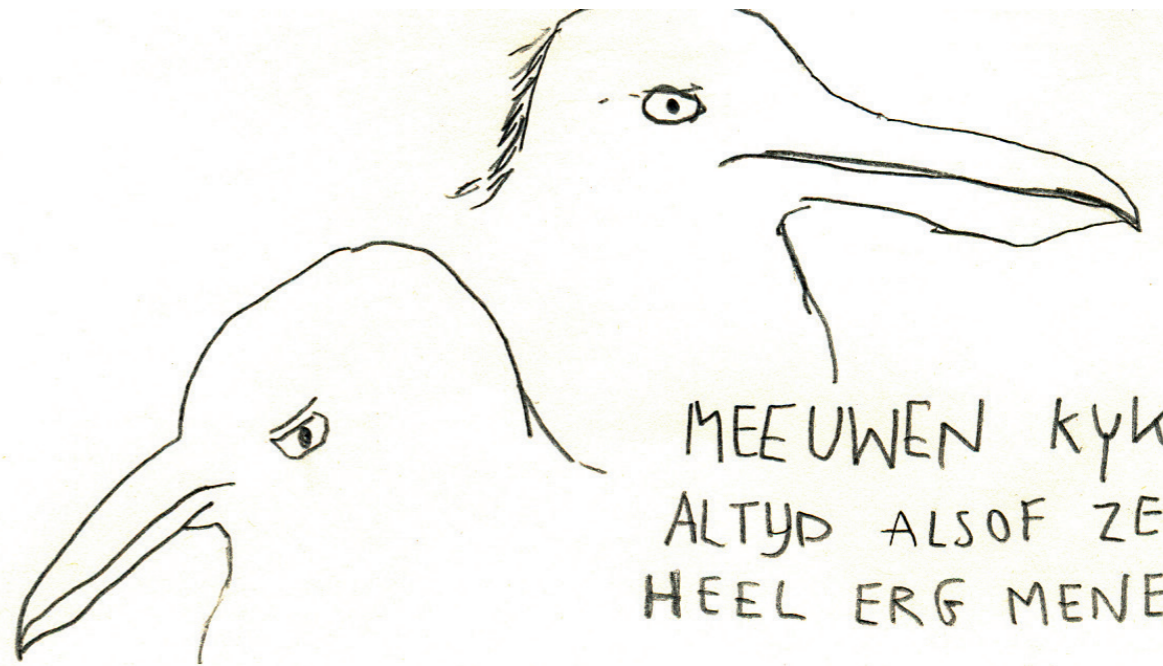 MEEUWEN KYK
ALTYD ALSOF ZE
HEEL ERG MENE